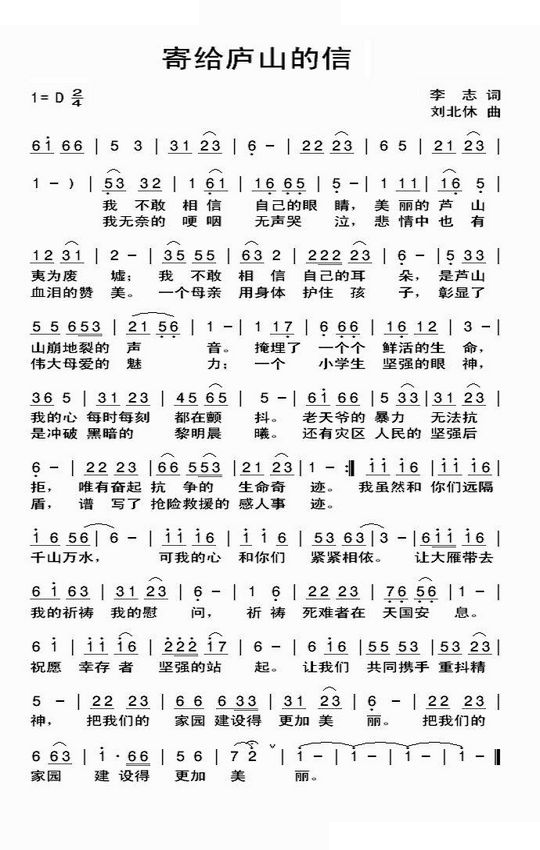 寄给庐山的信
1=D 2/4
李 志 词
刘北休 曲
6i 66 | 5 3 | 31 23 | 6 - | 22 23 | 65 5 |
1 - ) | 53 32 | 1 61 | 16 65 | 5 - | 51 11 | 16 5 |
我 不敢 相信 自己的眼 睛，美 丽的 芦山
我无奈的 哽咽 无声哭 泣，悲 情中 也有
12 31 | 2 - | 35 55 | 63 2 | 222 23 | 6 - | 5 33 |
夷为废 墟；我 不敢 相信 自己的耳 朵，是芦山
血泪的赞 美。一个母亲 用身体 护住 孩 子，彰显了
5 5 653 | 21 56 | 1 - | 1 17 | 6 66 | 16 12 | 3 - |
山崩地裂的 声 音。掩埋了 一个个 鲜活的生 命，
伟大母爱的 魅 力；一个 小学生 坚强的眼 神，
36 5 | 31 23 | 45 65 | 5 - | 61 65 | 5 33 | 31 23 |
我的心 每时每刻 都在颤 抖。老天爷的 暴力 无法抗
是冲破 黑暗的 黎明晨 曦。还有灾区 人民的 坚强后
6 - | 22 23 | 66 553 | 21 23 | 1 - :‖ ii i6 | ii i6 |
拒，唯有奋起 抗 争的 生命奇 迹。我虽然和 你们远隔
盾，谱 写了 抢险救援的 感人事 迹。
i 6 56 | 6 - | ii i6 | ii i6 | 53 63 | 3 - | 6ii i6 |
千山万水，可我的心 和你们 紧紧相依。让大雁带去
6 i 63 | 31 23 | 6 - | 1 6 | 22 23 | 76 56 | 1 - |
我的祈祷 我的慰 问，祈祷 死难者在 天国安 息。
6 i | ii i6 | 222 i7 | 6 - | 66 i6 | 55 53 | 53 23 |
祝愿 幸存者 坚强的站 起。让我们 共同携手 重抖精
5 - | 22 23 | 6 6 633 | 31 23 | 1 - | 22 23 |
神，把我们的 家园 建设得 更加 美 丽。把我们的
6 63 | i · 66 | 5 5 | 56 | 7 2 ˅ | i - | i - | i - | i - ‖
家园 建 设得 更加 美 丽。